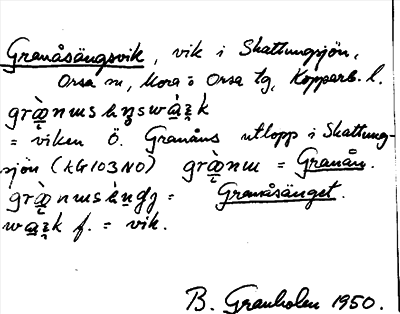 Granåsängsvik, vik i Skattungsjön,
Orsa sn, Mora o Orsa tg, Kopparb. l.
= viken Ö. Granåns utlopp i Skattung-
sjön (kG103NO) = Granån.
= Granåsänget.
f. = vik.
B. Granholm 1950.